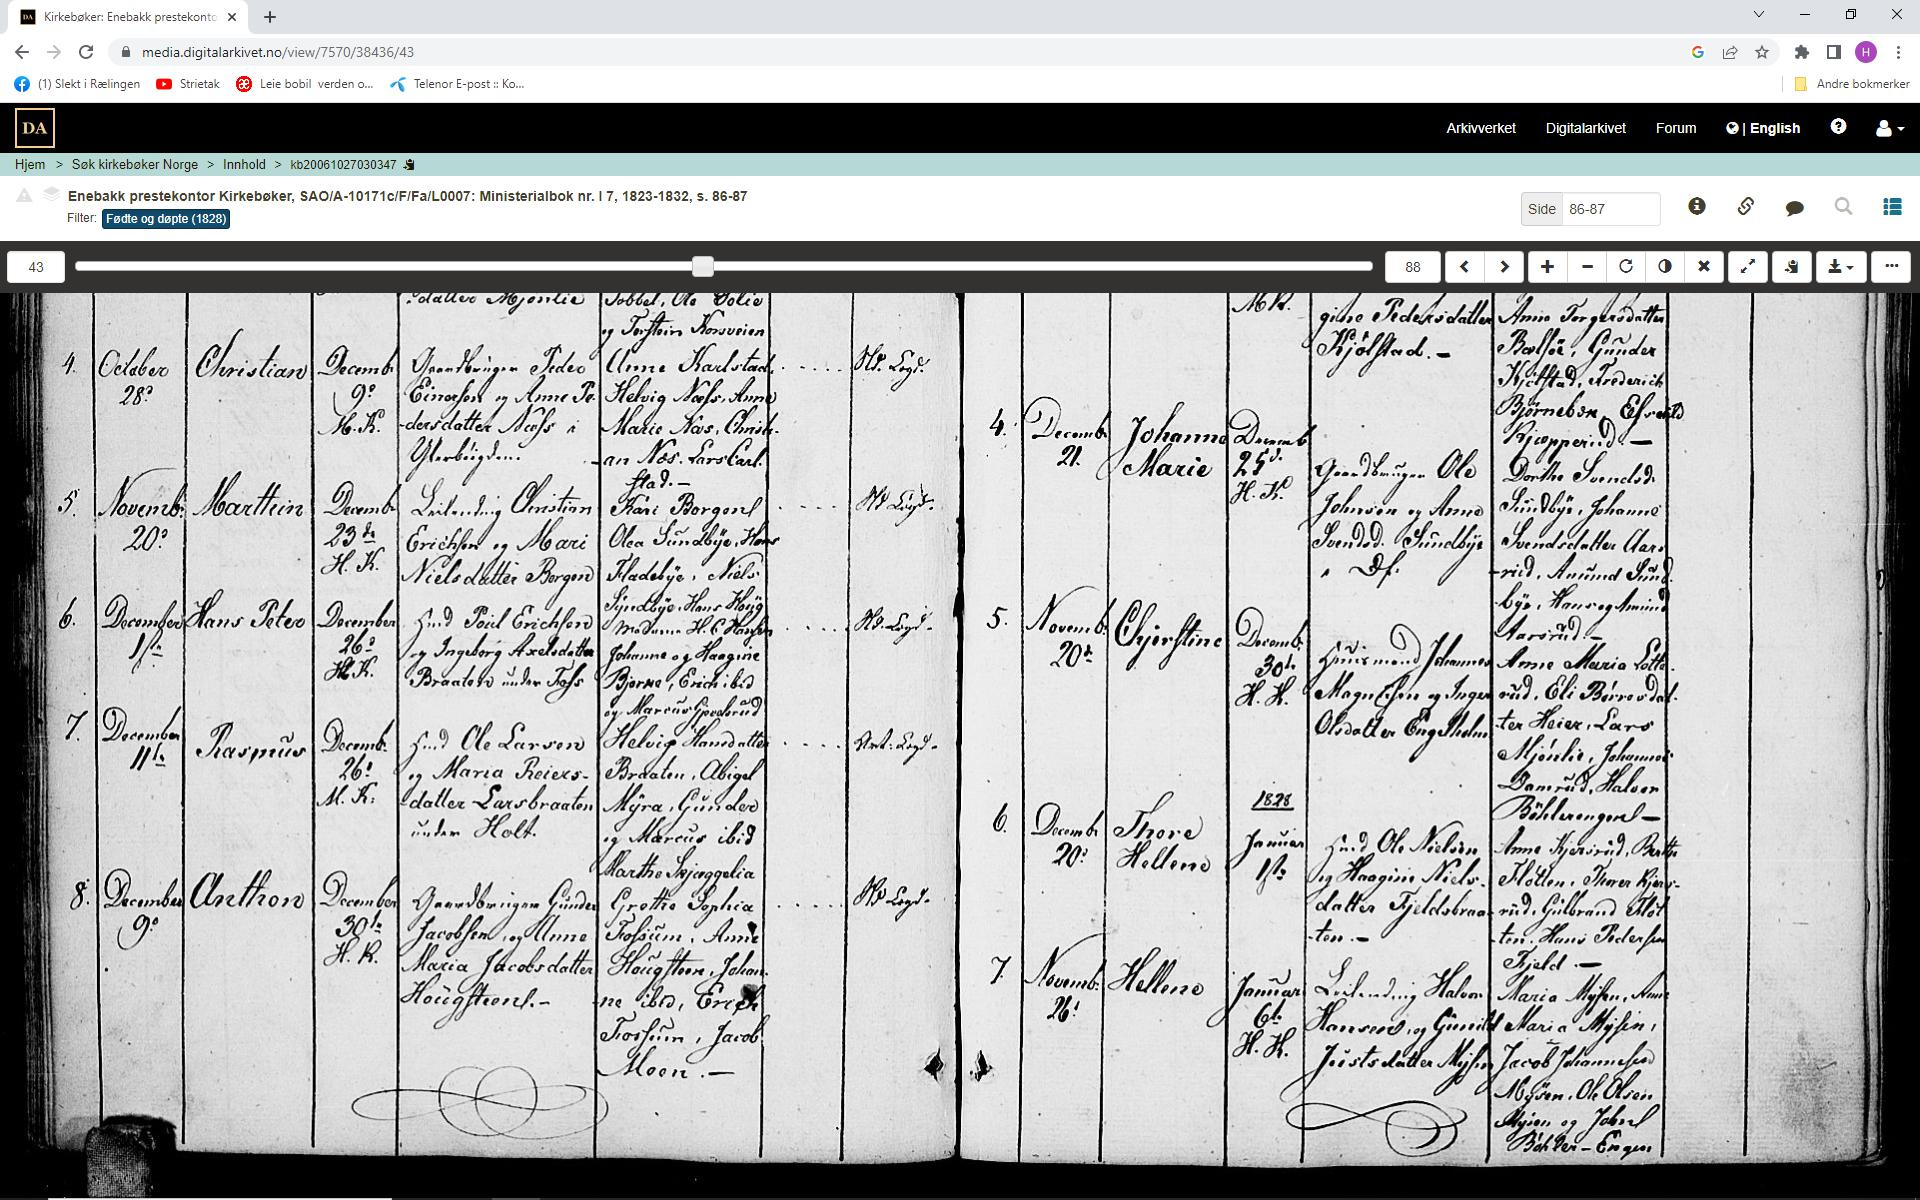 Kirkebøker: Enebakk prestekonto
media.digitalarkivet.no/view/7570/38436/43
(1) Slekt i Rælingen
Strietak
Leie bobil verden o...
Telenor E-post :: Ko...
Andre bokmerker
DA
Arkivverket
Digitalarkivet
Forum
| English
Hjem > Søk kirkebøker Norge > Innhold > kb20061027030347
Enebakk prestekontor Kirkebøker, SAO/A-10171c/F/Fa/L0007: Ministerialbok nr. I 7, 1823-1832, s. 86-87
Filter: Fødte og døpte (1828)
Side 86-87
43
88
datter Mjønlie
og Torstein Korsveien
4.
October
28de
Christian
Decemb
9de
H. K.
Gaardbruger Peder
Einersen og Anne Pe-
dersdatter Næss i
Ytterbügden.
Anne Karlstad,
Helvig Næss, Anne
Marie Næs, Christi-
an Næs, Lars Carl-
stad.-
5.
Novemb.
20de
Marthin
Decemb
23de
H. K.
Leilending Christian
Erichsen og Mari
Nielsdatter Borgen
Kari Borgen
Olea Sundbye, Hans
Fladebye, Niels
Syndbye, Hans Høÿg
6.
December
1ste
Hans Peter
December
26de
H. K.
Huusd Poül Erichsen
og Ingeborg Axelsdatter
Braaten under Foss
Madame H. C. Hansen
Johanne og Haagine
Bjerke, Erich ibid
og Marcus
7.
December
11te
Rasmus
Decemb.
26de
M. K.
Ole Larsen
og Maria Reiers-
datter Larsbraaten
under Holt.
Helvig Hansdatter
Braaten, Abigel
Mÿra, Gunder
og Marcus ibid
Marthe Skjæggelia
8.
December
9de
Anthon
December
30te
H. K.
Gaardbruger Gunder
Jacobsen og Anne
Maria Jacobsdatter
Hougsteen.-
Grethe Sophia
Fossum, Anne
Hougsteen, Johan-
ne ibid, Erich
Fossum, Jacob
Moen.-
M K.
gine Pedersdatter
Kjølstad.-
Anne Torgersdatter
Gunder
Kjølstad, Frederich
Kjøpperud-
4.
Decemb
21.
Johanne
Marie
Decemb
25de
H. K.
Gaardbruger Ole
Johnsen og Anne
Svendsd. Sundbye
Dorthe Svendsd.
Sundbye, Johanne
Svendsdatter Aars-
rud, Amund Sund-
bye, Hans og Amund
Aarsrud-
5.
Novemb.
20de
Chjerstine
Decemb
30te
H. K.
Huusmand Johannes
Magnesen og Inger
Olsdatter Engsholm
Anne Maria Lotte-
rud, Eli Børresdat-
ter Heier, Lars
Mjønlie, Johannes
Damrud, Halvor
Böhlerengen-
6.
Decemb
20de
Thore
Hellene
1828
Januar
1ste
Ole Nielsen
og Haagine Niels-
datter Fjeldsbraa-
ten.-
Anne Kjersrud, Berthe
Fløtten, Thorer Kjers-
rud, Gulbrand Fløt-
ten, Hans Pedersen
Fjeld.-
7
Novemb.
26de
Hellene
Januar
6te
H. K.
Leilending Halvor
Hansen og Gunild
Justsdatter Mysen
Maria Mysen, Anne
Maria Mysen,
Jacob Johannesen
Mysen, Ole Olsen
Mysen og John
Böhler-Engen